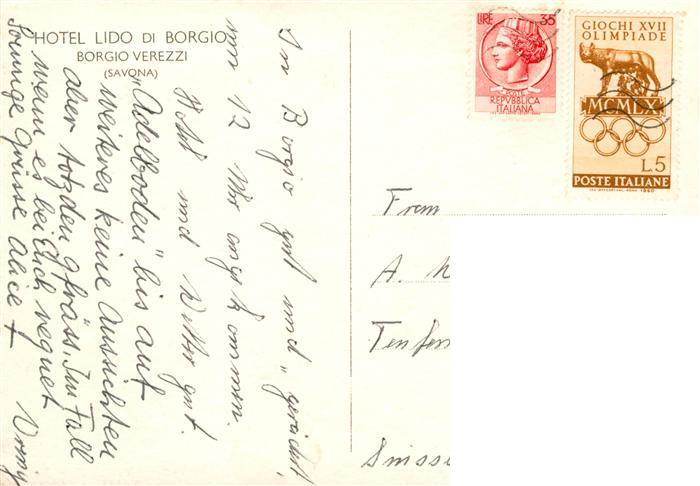 HOTEL LIDO DI BORGIO
BORGIO VEREZZI
(SAVONA)
In Borgio gut und „geräd“
um 12 Uhr angekommen.
Hotel und Wetter gut.
„Adelboden“ bis auf
weiteres keine Aussichten
aber totzdem gfräss. Im Fall
wenn es bei Euch regnet
Sonnige Grüsse Alice +
LIRE 35
POSTE
REPVBBLICA
ITALIANA
GIOCHI XVII
OLIMPIADE
MCMLX
L.5
POSTE ITALIANE
A.
Suisse